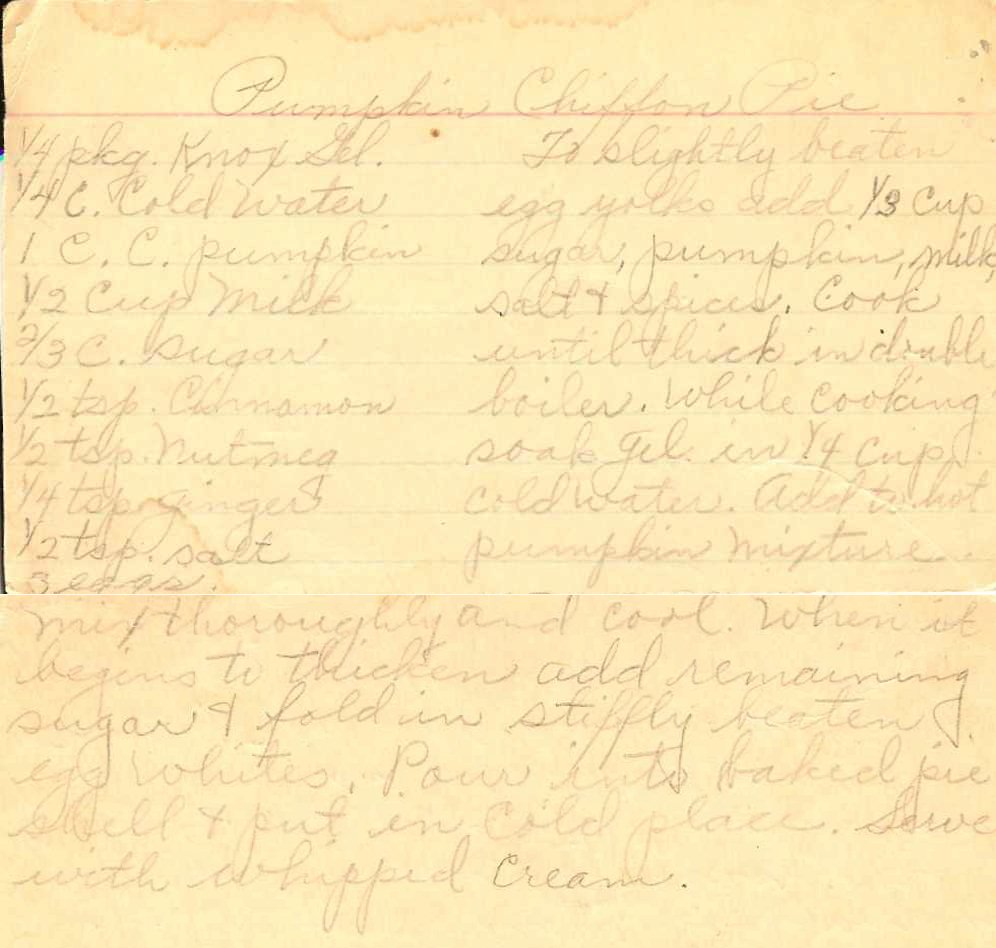 Pumpkin Chiffon Pie
1/4 pkg. Knox Gel.
1/4 C. Cold Water
1 C. C. pumpkin
1/2 Cup Milk
2/3 C. sugar
1/2 tsp. Cinnamon
1/2 tsp. Nutmeg
1/4 tsp ginger
1/2 tsp. salt
3 eggs.
To slightly beaten
egg yolks add 1/3 cup
sugar, pumpkin, milk,
salt & spices. Cook
until thick in double
boiler. While cooking
soak gel. in 1/4 cup
cold water. Add to hot
pumpkin mixture.
Mix thoroughly and cool. When it
begins to thicken add remaining
sugar & fold in stiffly beaten
egg whites. Pour into baked pie
shell & put in cold place. Serve
with whipped cream.